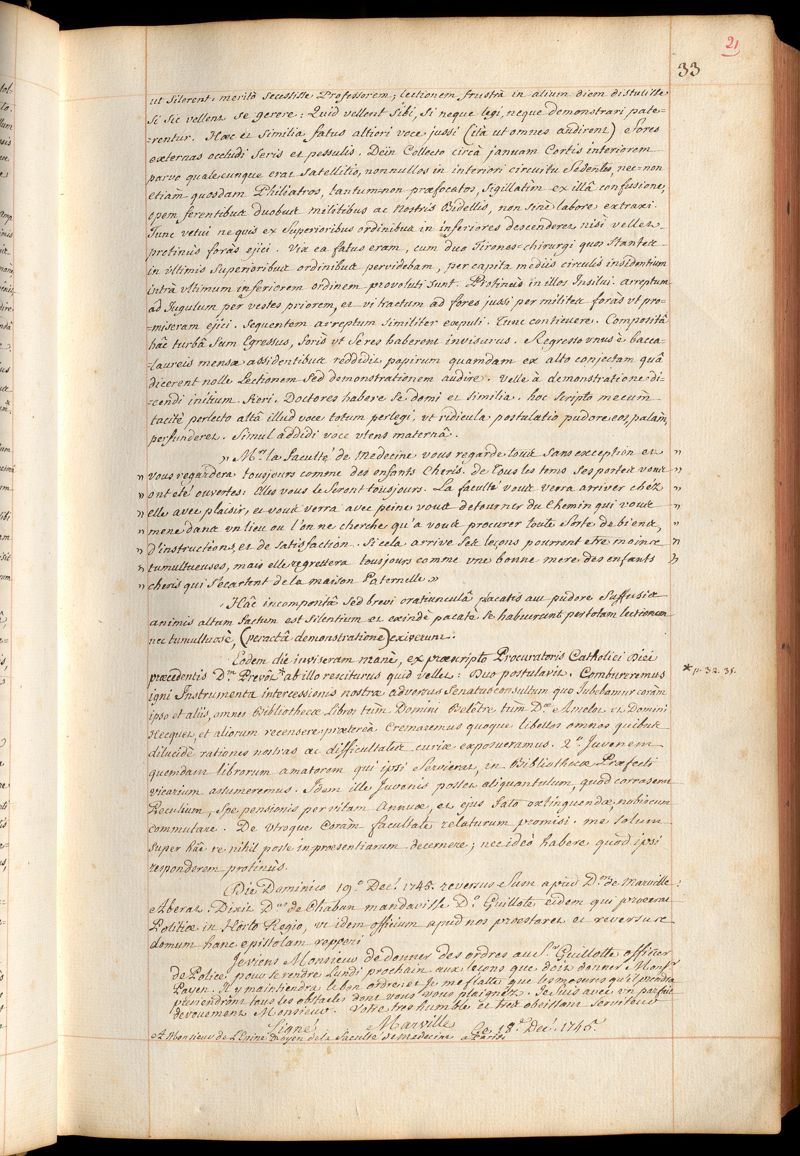 21
33
ut silerent, merito secessisse Professorem; lectionem frustrà in alium diem distulisse
si sic vellent se gerere: Quid vellent sibi, si neque legi, neque demonstrari pate-
=rentur. Hæc et similia fatus altiori voce jussi (ità ut omnes audirent) fores
externas occludi seris et pessulis. Dein Collecto circà januam Cortis interiorem
parvo qualecunque erat satellitio, nonnullos in interiori circuitu sedentes, nec-non
etiam quosdam Philiatros, tantum-non præfocatos, sigillatim ex illâ confusione,
opem ferentibus duobus militibus ac nostris Bidellis, non sinè labore extraxi.
Tunc vetui nequis ex superioribus ordinibus in inferiores descenderet, nisi vellet
protinus foràs ejici. Vix ea fatus eram, cum duo Tirones-chirurgi quos stantes
in ultimis superioribus ordinibus pervidebam, per capita mediis circulis insidentium
intrà ultimum inferiorem ordinem provoluti sunt. Protinùs in illos insilui. arreptum
ad Jugulum per vestes priorem, et vi tractum ad fores jussi per milites foràs ut pro-
=miseram ejici. sequentem arreptum similiter expuli. Tunc conticuere. Compositâ
hâc turbâ sum Egressus, foris ut se res haberent invisurus. Regresso unus è bacca-
=laureis mensæ assidentibus reddidit papirum quamdam ex alto conjectam quâ
dicerent nolle Lectionem sed demonstrationem audire. Velle à demonstratione di-
=cendi initium fieri. Doctores habere se domi et similia. hoc scripto mecum
tacitè perlecto altâ illud voce totum perlegi, ut ridicula postulatio pudore eos, palàm,
perfunderet. Simul addidi voce utens maternâ.
" Mrs. la faculté de Medecine vous regarde tous sans exception et "
" vous regardera tousjours comme des enfants cheris. de tous les tems ses portes vous "
" ont eté ouvertes: Elles vous le seront tousjours. La faculté vous verra arriver chéz "
" elle avec plaisir, et vous verra avec peine vous detourner du chemin qui vous "
" mene dans un lieu ou l'on ne cherche qu'a vous procurer toute sorte de biens, "
" D'instructions, et de satisfaction. Si cela arrive ses leçons pourront etre moins "
" tumultueuses, mais elle regrettera tousjours comme une bonne mere des enfants "
" cheris qui s'ecartent de la maison Paternelle. "
Hâc incomptâ sed brevi oratiunculâ pacatis aut pudore suffusis
animis altum factum est silentium et exindè pacatè se habuerunt per totam lectionem
nec tumultuosè, (peractâ demonstratione) exiverunt.
Eodem die inviseram manè, ex præscripto Procuratoris Catholici Diei
præcedentis Dm. Prevôt * ab illo resciturus quid vellet: Duo postulavit. Combureremus
* p. 32. 35.
igni Instrumenta intercessionis nostræ adversus Senatusconsultum quo Jubebamur coràm
ipso et aliis, omnes Bibliothecæ Libros tum Domini Belêtre tum Dni Amelot et Domini
Hecquet, et aliorum recensere, præterea Cremaremus quoque libellos omnes quibus
dilucidè rationes nostras ac difficultates curiæ exposueramus. 2.o Juvenem
quemdam librorum amatorem qui ipsi servierat, in Bibliothecæ Præfecti
vicarium assumeremus. Idem ille Juvenis posset aliquantulum, quod corraserat
Peculium, spe pensionis per vitam Annuæ, et ejus fato extinguendæ, nobiscum
commutare. De utroque coràm facultate relaturum promisi. me solum
super hâc re nihil posse in præsentiarum decernere; nec ideò habere quod ipsi
responderem protinùs.
Die Dominico 19.a Dec.s 1745. reversus sum apud Dm. de Marville:
Aberat. Dixit Dnus de Chaban mandavisse Do. Guillote eidem qui præerat
Politiæ in Horto Regio, ut idem officium apud nos præstaret et reversus
domum hanc epistolam repperi
Je viens Monsieur de donner des ordres au Sr. Guillotte officier
de Police, pour se rendre Lundi prochain aux leçons que doit donner Monsr.
Payen. Il y maintiendra le bon ordre et je me flatte que les mesures qu'il prendra
previendront tous les obstacles dont vous vous plaignez. Je suis avec un parfait
devouement Monsieur. Votre tres humble et tres obeissant serviteur
Signé Marville Ce 18.e Dec. 1745.
A Monsieur de L'Epine Doyen de la faculté de Medecine a Paris